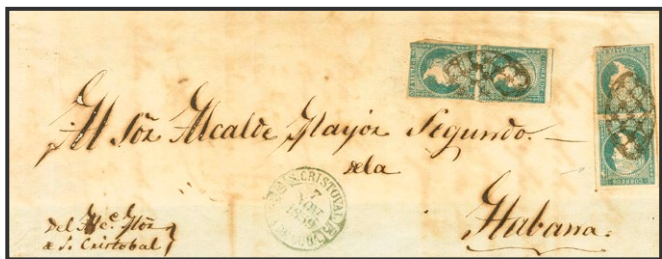 Al Sõr Alcalde Mayor Segundo.
dela
Habana.
S. CRISTOVAL
7
NOV
1859
CORREOS
Del Alce. Mõr
de S. Cristobal